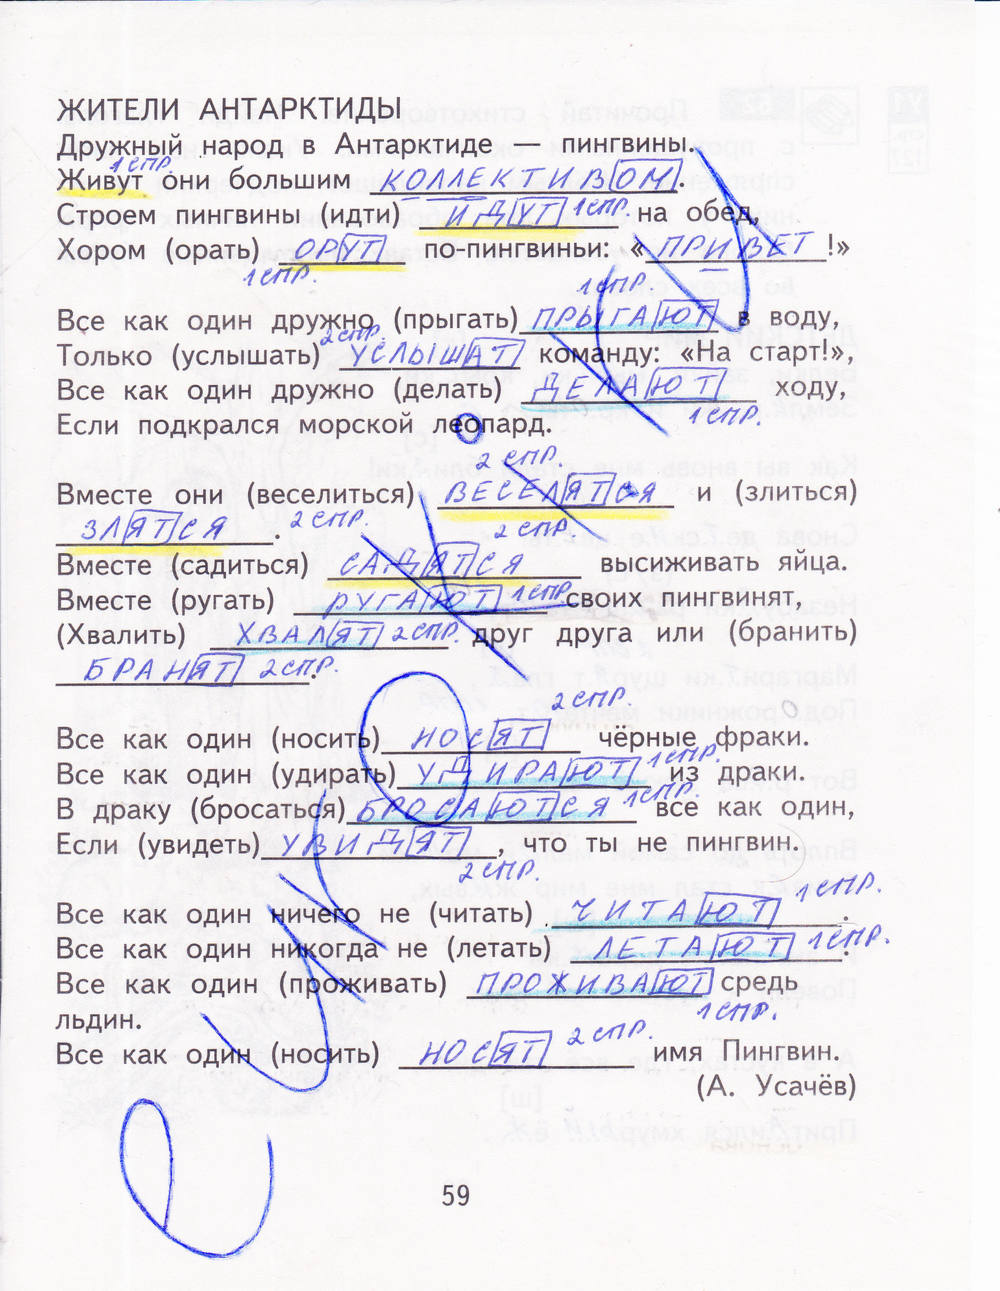 ЖИТЕЛИ АНТАРКТИДЫ
Дружный народ в Антарктиде пингвины.
1 спр.
Живут они большим КОЛЛЕКТИВОМ.
Строем пингвины (идти) ИДУТ 1 спр. на обед,
Хором (орать) ОРУТ по-пингвиньи: «ПРИВЕТ!»
1 спр.
1 спр.
Все как один дружно (прыгать) ПРЫГАЮТ в воду,
2 спр.
Только (услышать) УСЛЫШАТ команду: «На старт!»,
Все как один дружно (делать) ДЕЛАЮТ ходу,
1 спр.
Если подкрался морской леопард.
2 спр.
Вместе они (веселиться) ВЕСЕЛЯТСЯ и (злиться)
ЗЛЯТСЯ 2 спр. .
2 спр.
Вместе (садиться) САДЯТСЯ высиживать яйца.
Вместе (ругать) РУГАЮТ 1 спр. своих пингвинят,
(Хвалить) ХВАЛЯТ 2 спр. друг друга или (бранить)
БРАНЯТ 2 спр.
2 спр.
Все как один (носить) НОСЯТ чёрные фраки.
Все как один (удирать) УДИРАЮТ 1 спр. из драки.
В драку (бросаться) БРОСАЮТСЯ 1 спр. все как один,
Если (увидеть) УВИДЯТ, что ты не пингвин.
2 спр.
Все как один ничего не (читать) ЧИТАЮТ 1 спр. .
Все как один никогда не (летать) ЛЕТАЮТ 1 спр. .
Все как один (проживать) ПРОЖИВАЮТ средь
1 спр.
льдин.
Все как один (носить) НОСЯТ 2 спр. имя Пингвин.
(А. Усачёв)
59